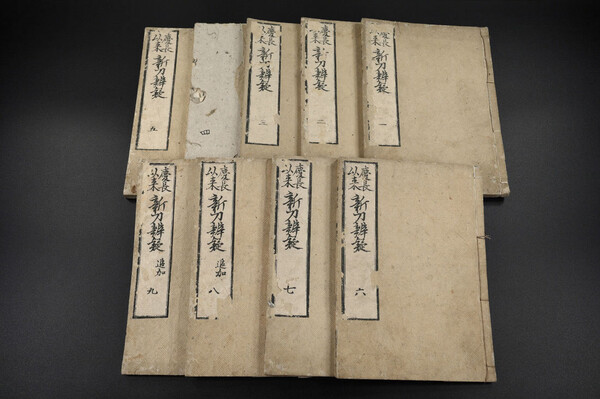 慶長
以来
新刀辨疑
一
慶長
以来
新刀辨疑
二
慶長
以来
新刀辨疑
三
四
慶長
以来
新刀辨疑
五
慶長
以来
新刀辨疑
六
慶長
以来
新刀辨疑
七
慶長
以来
新刀辨疑
追加
八
慶長
以来
新刀辨疑
追加
九